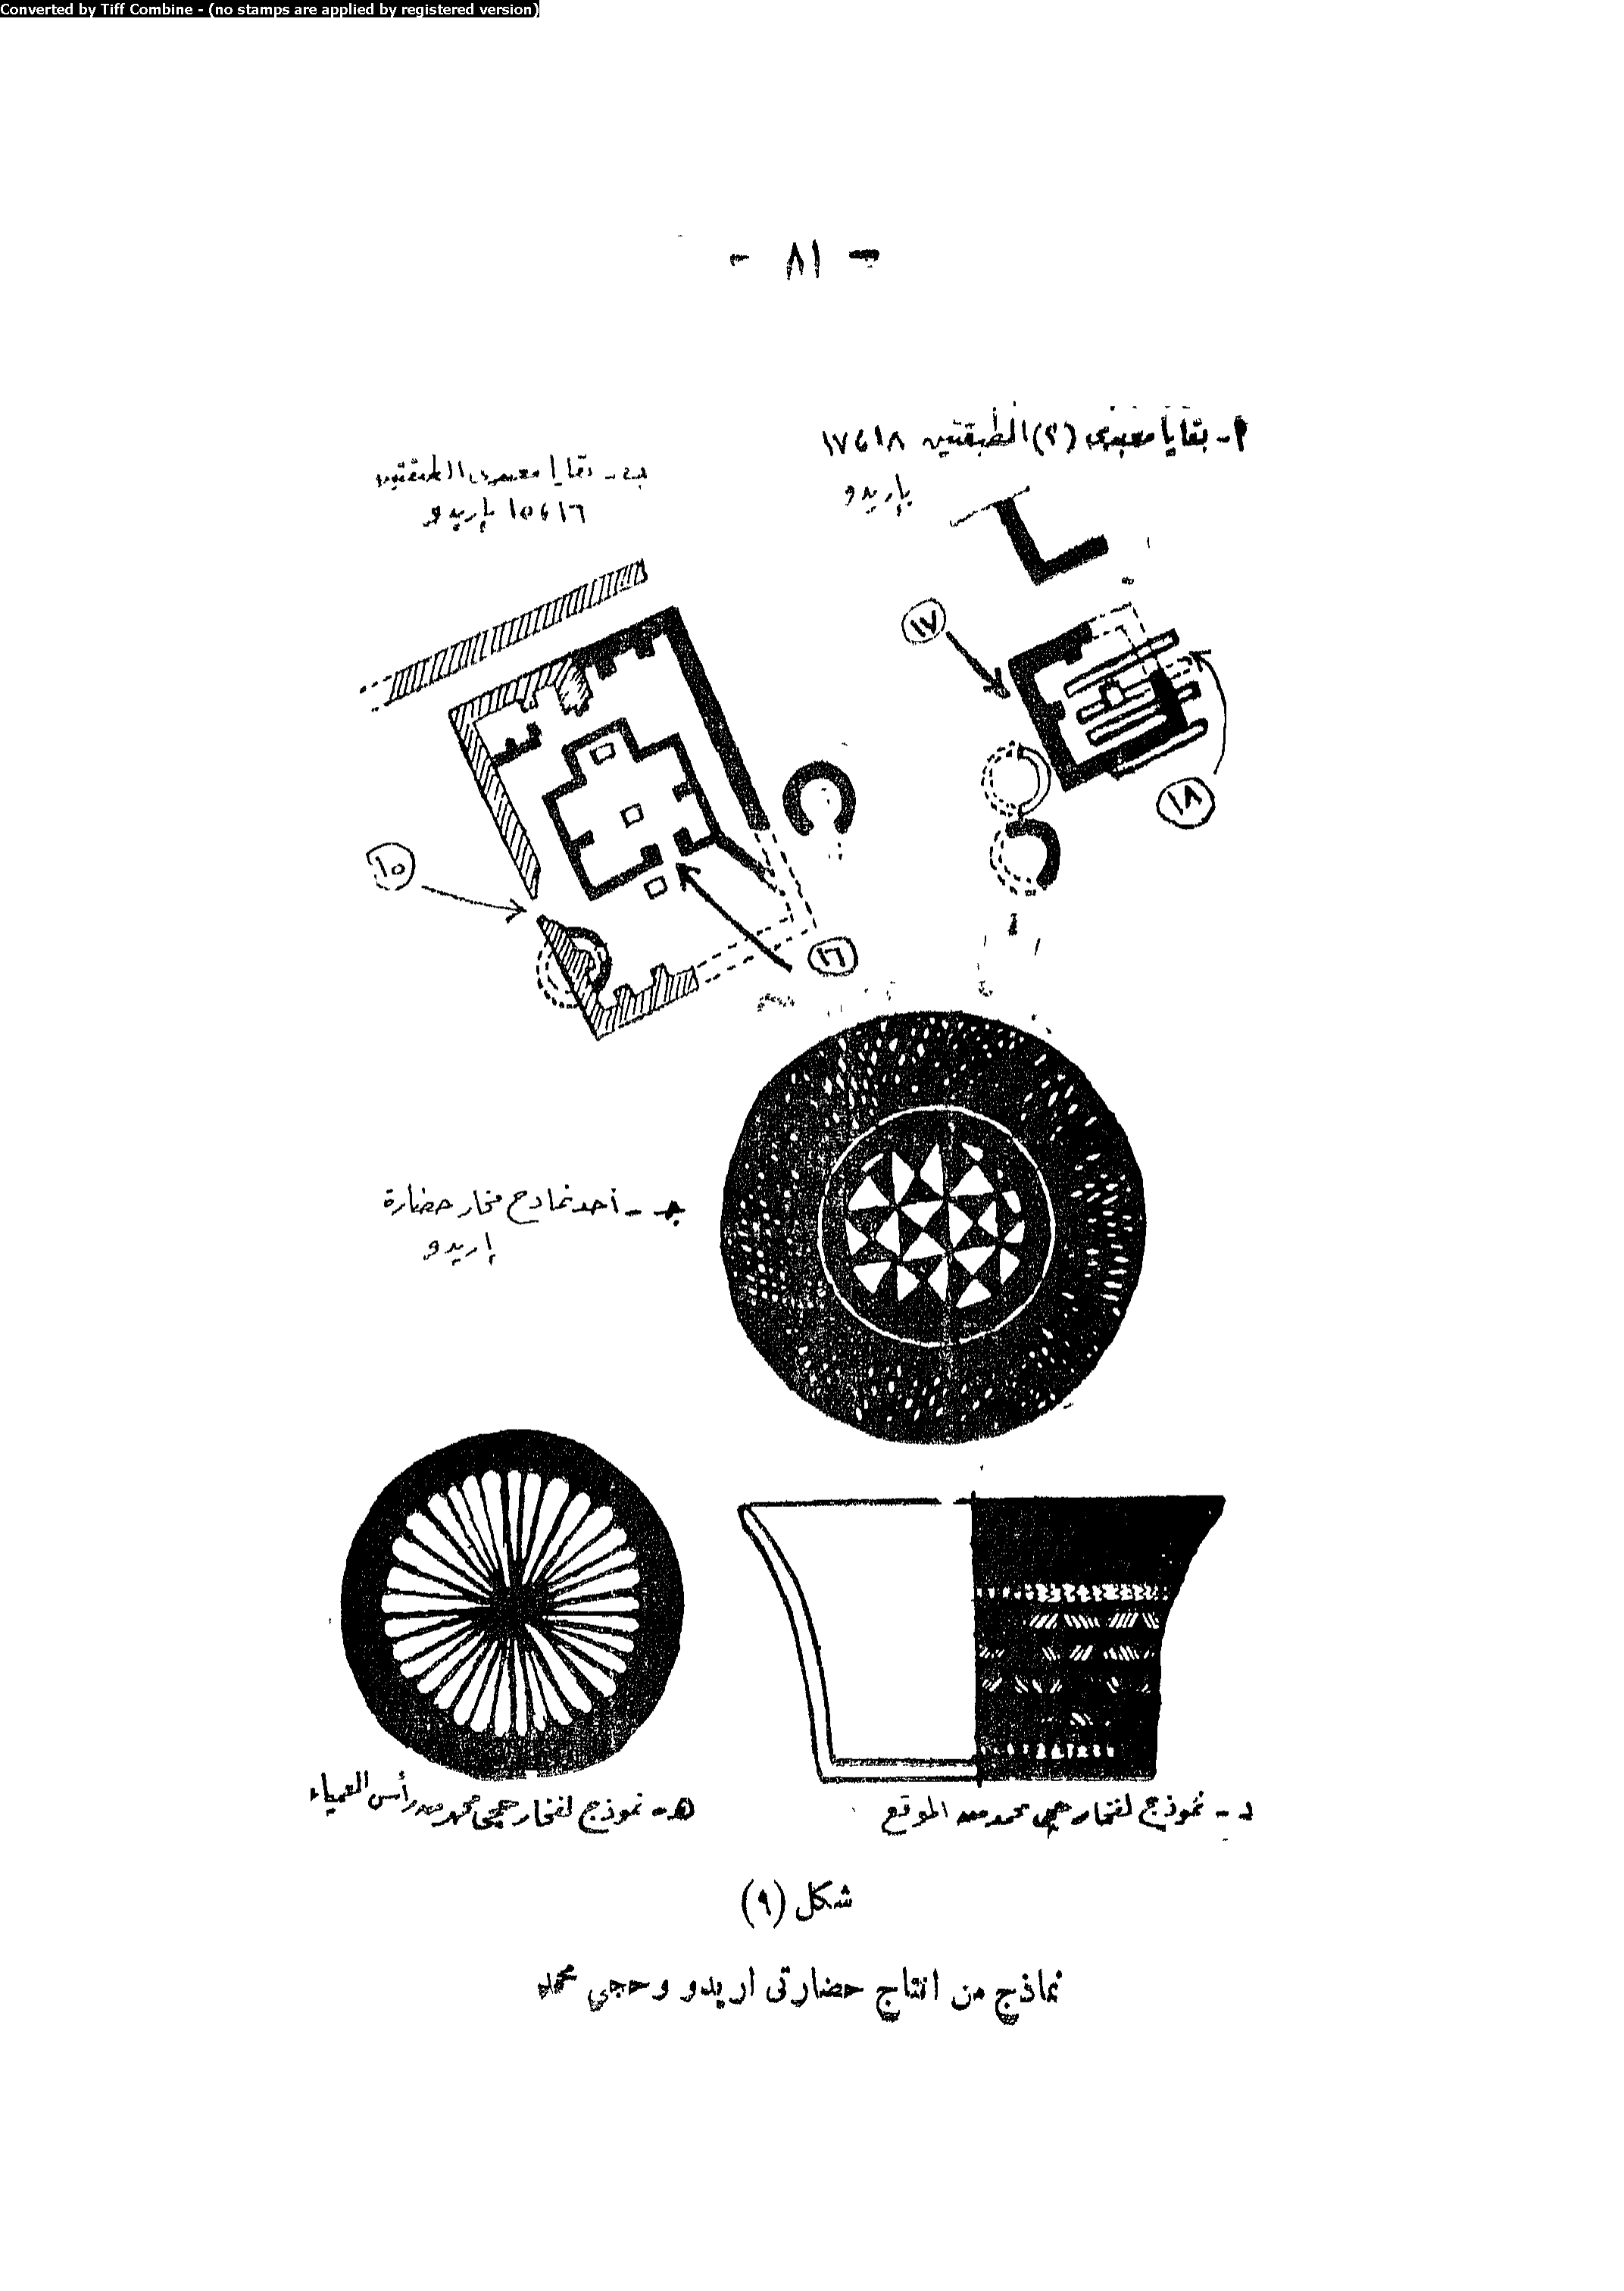 Converted by Tiff Combine - (no stamps are applied by registered version)
- ٨١ -
أ - بقايا معبدى (؟) الطبقتين ١٨ ، ١٧
بإريدو
ب - بقايا معبدى الطبقتين
١٦ ، ١٥ بإريدو
١٧
١٨
١٥
١٦
جـ - أحد نماذج فخار حضارة
إريدو
د - نموذج لفخار حجى محمد من الموقع
هـ - نموذج لفخار حجى محمد من رأس العمياء
شكل (٩)
نماذج من انتاج حضارتى اريدو وحجى محمد